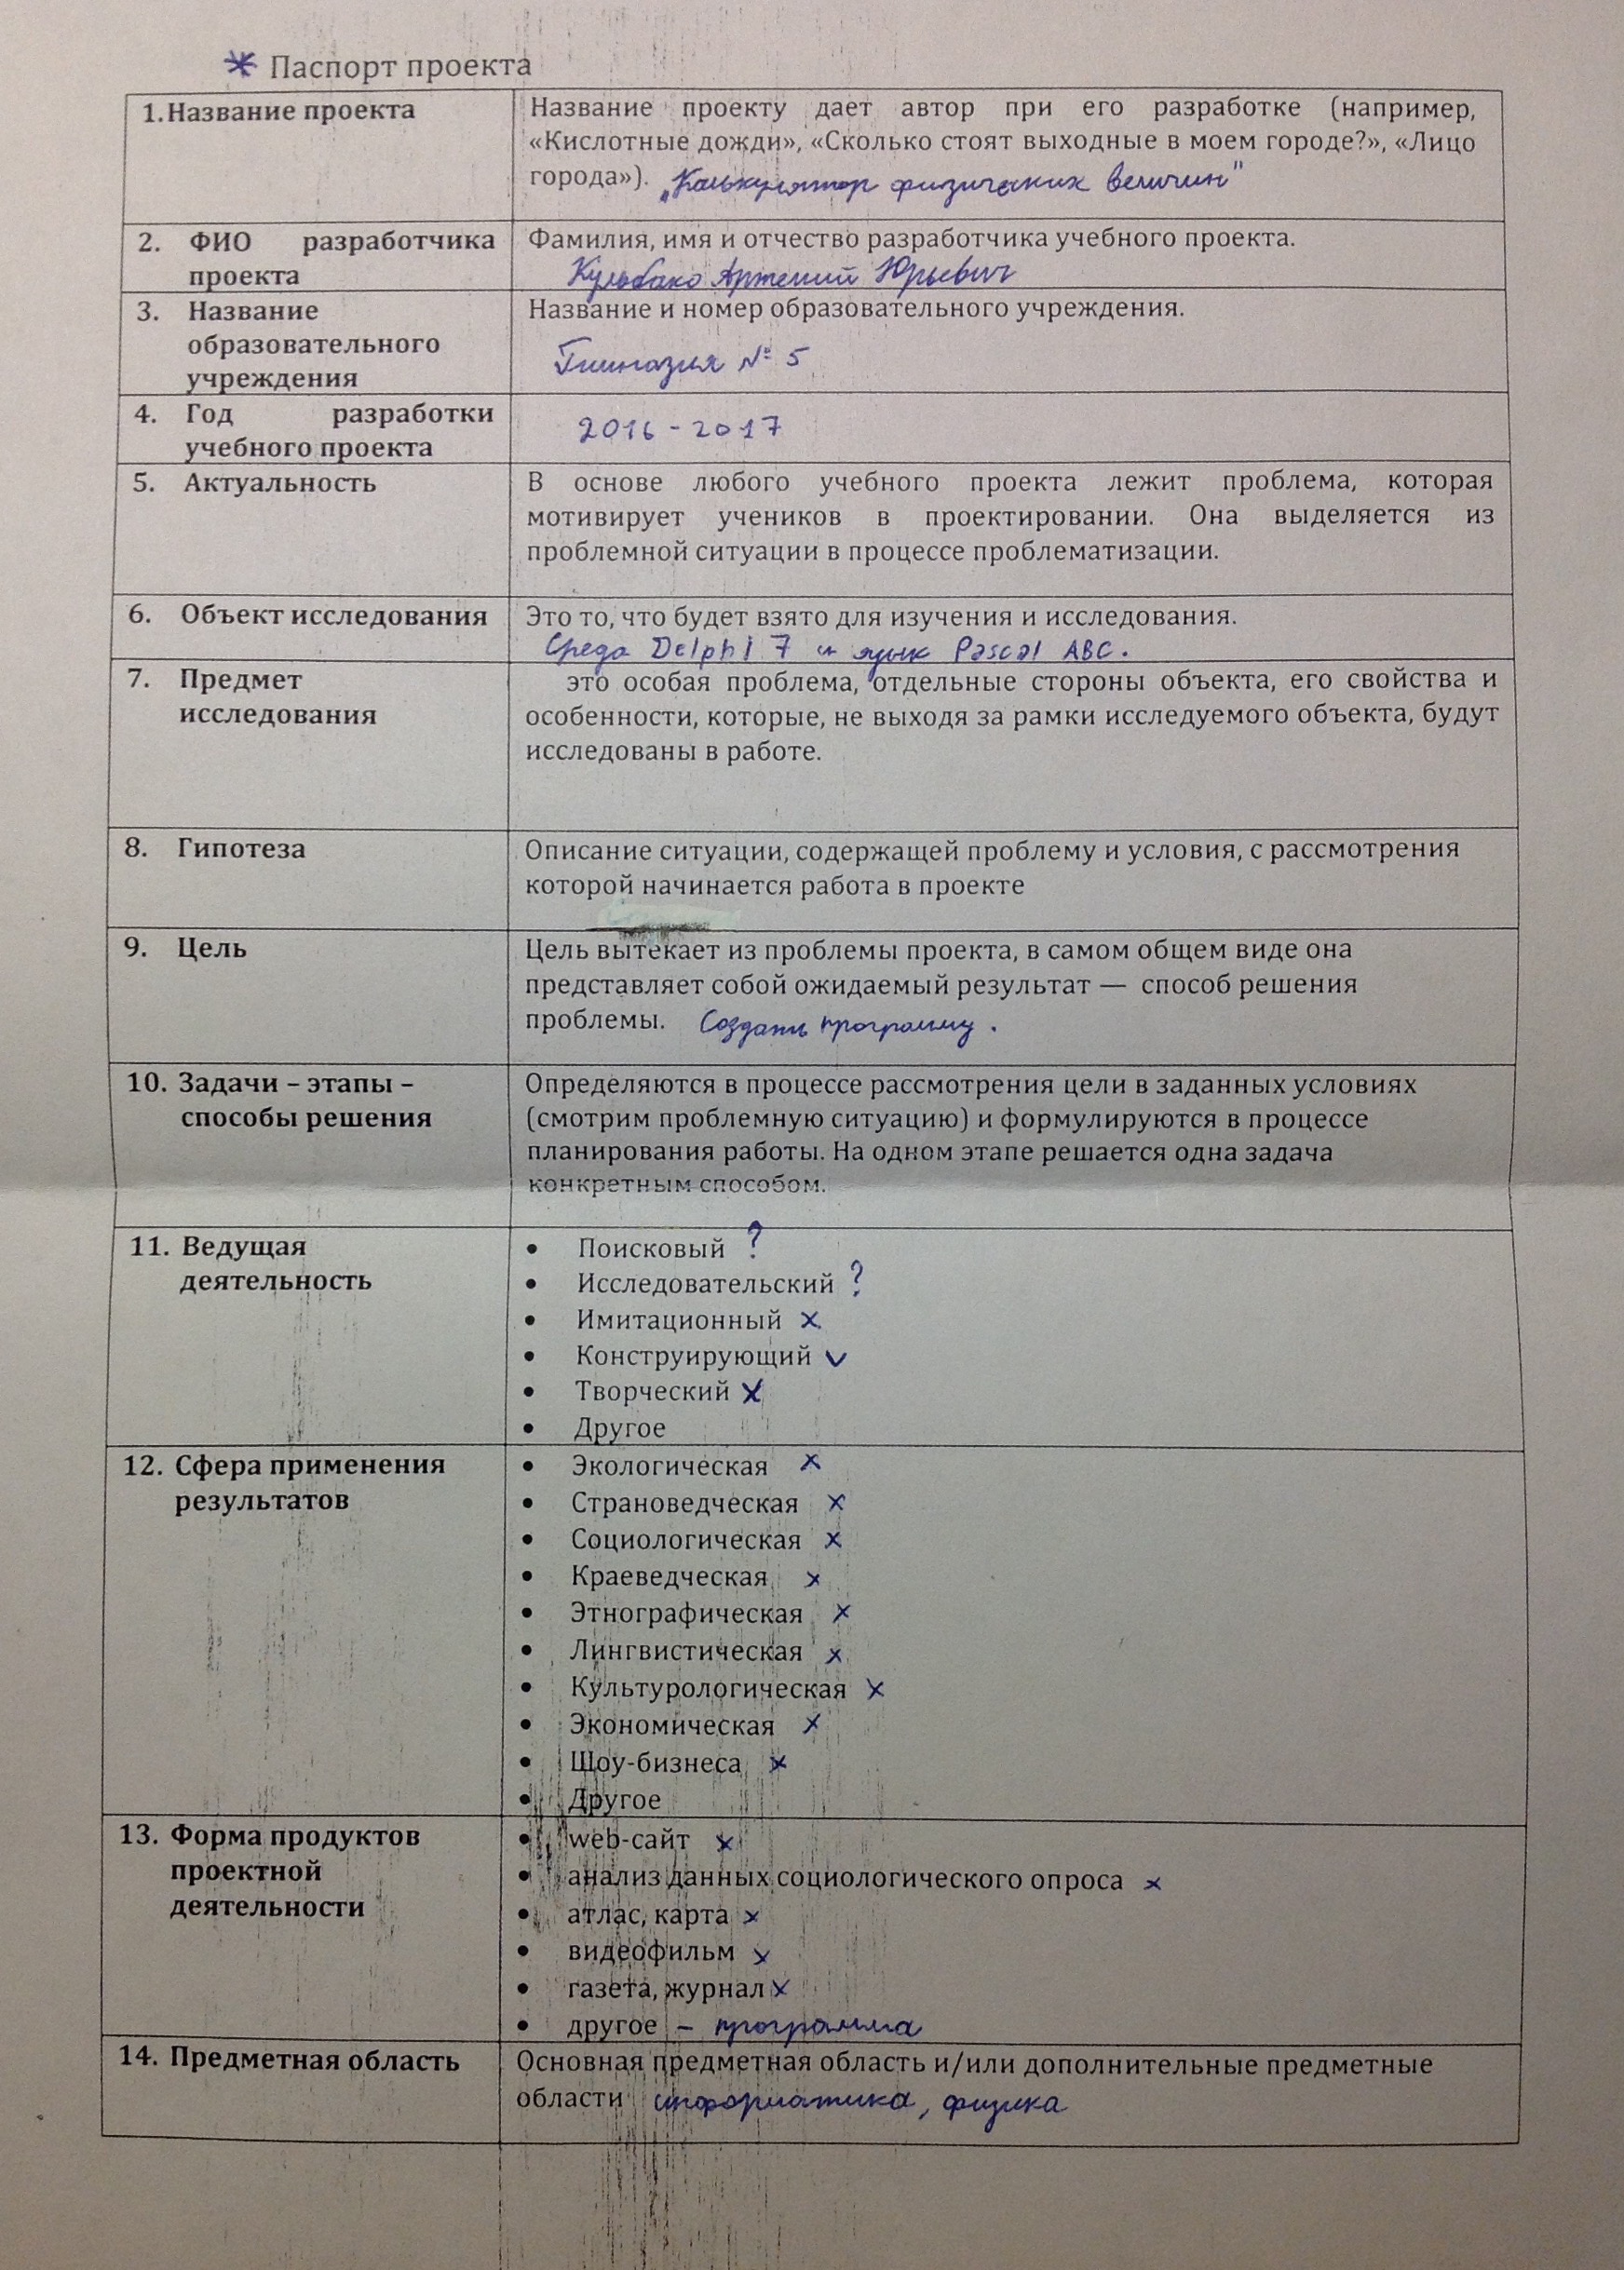 Паспорт проекта
1. Название проекта
Название проекту дает автор при его разработке (например,
«Кислотные дожди», «Сколько стоят выходные в моем городе?», «Лицо
города»). „Калькулятор физических величин"
2. ФИО разработчика
проекта
Фамилия, имя и отчество разработчика учебного проекта.
Кульбако Артемий Юрьевич
3. Название
образовательного
учреждения
Название и номер образовательного учреждения.
Гимназия № 5
4. Год разработки
учебного проекта
2016 - 2017
5. Актуальность
В основе любого учебного проекта лежит проблема, которая
мотивирует учеников в проектировании. Она выделяется из
проблемной ситуации в процессе проблематизации.
6. Объект исследования
Это то, что будет взято для изучения и исследования.
Среда Delphi 7 и язык Pascal ABC.
7. Предмет
исследования
это особая проблема, отдельные стороны объекта, его свойства и
особенности, которые, не выходя за рамки исследуемого объекта, будут
исследованы в работе.
8. Гипотеза
Описание ситуации, содержащей проблему и условия, с рассмотрения
которой начинается работа в проекте
9. Цель
Цель вытекает из проблемы проекта, в самом общем виде она
представляет собой ожидаемый результат — способ решения
проблемы. Создать программу.
10. Задачи – этапы –
способы решения
Определяются в процессе рассмотрения цели в заданных условиях
(смотрим проблемную ситуацию) и формулируются в процессе
планирования работы. На одном этапе решается одна задача
конкретным способом.
11. Ведущая
деятельность
• Поисковый ?
• Исследовательский ?
• Имитационный x
• Конструирующий v
• Творческий x
• Другое
12. Сфера применения
результатов
• Экологическая x
• Страноведческая x
• Социологическая x
• Краеведческая x
• Этнографическая x
• Лингвистическая x
• Культурологическая x
• Экономическая x
• Шоу-бизнеса x
• Другое
13. Форма продуктов
проектной
деятельности
• web-сайт x
• анализ данных социологического опроса x
• атлас, карта x
• видеофильм x
• газета, журнал x
• другое – программа
14. Предметная область
Основная предметная область и/или дополнительные предметные
области информатика, физика